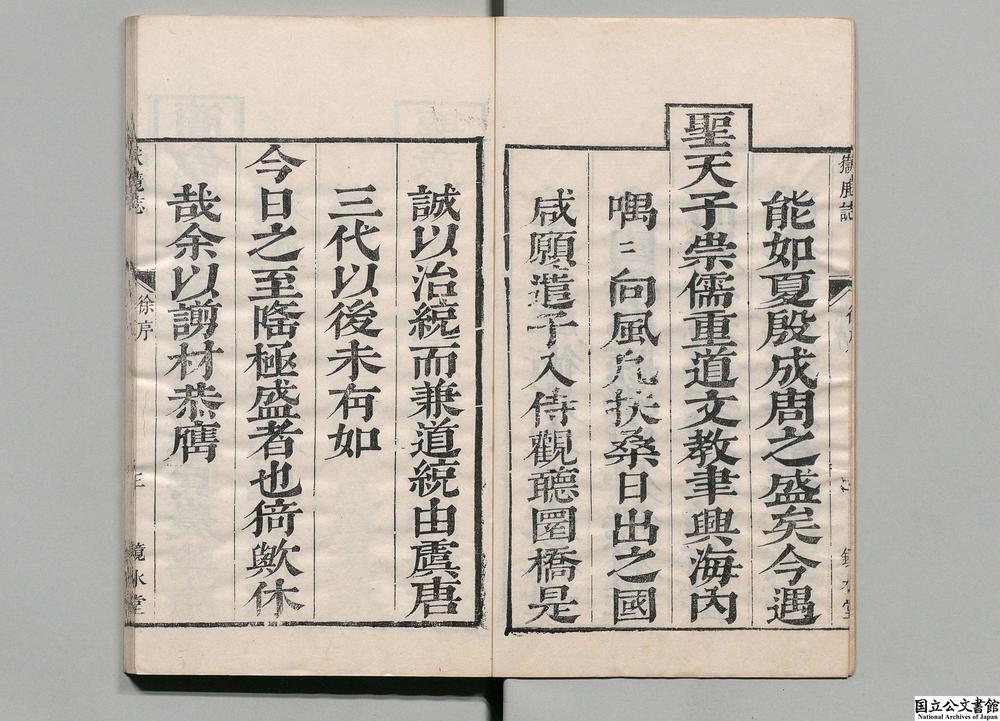 能如夏殷成周之盛矣今遇
聖天子崇儒重道文教聿興海內
喁〻向風凢扶桑日出之國
咸願遣子入侍觀聽圜橋是
誠以治統而兼道統由虞唐
三代以後未有如
今日之至隆極盛者也猗歟休
哉余以謭材恭膺
徐序
三
鏡水堂
国立公文書館
National Archives of Japan